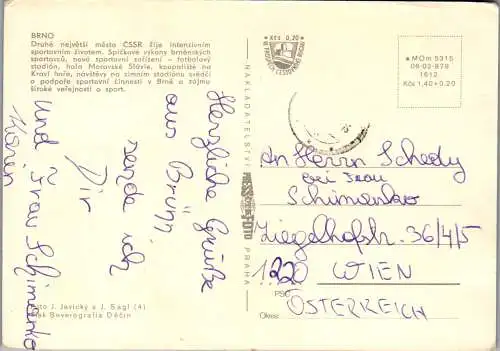 BRNO
Druhé největší město ČSSR žije intenzívním
sportovním životem. Špičkové výkony brněnských
sportovců, nové sportovní zařízení – fotbalový
stadión, hala Moravské Slávie, koupaliště na
Kraví hoře, návštěvy na zimním stadiónu svědčí
o podpoře sportovní činnosti v Brně a zájmu
široké veřejnosti o sport.
Herzliche Grüße
aus Brünn
sende ich
Dir
und Frau Schimanko
Karin
Foto J. Jovický a J. Sagl (4)
Tisk Severografia Děčín
NAKLADATELSTVÍ
PRESSFOTO
PRAHA
Kčs 0,20
MOm 5315
06-02-878
1612
Kčs 1,40+0,20
An Herrn Schedy
bei Frau
Schimanko
Ziegelhofstr. 36/4/5
1220 WIEN
PSČ
ÖSTERREICH
Okres